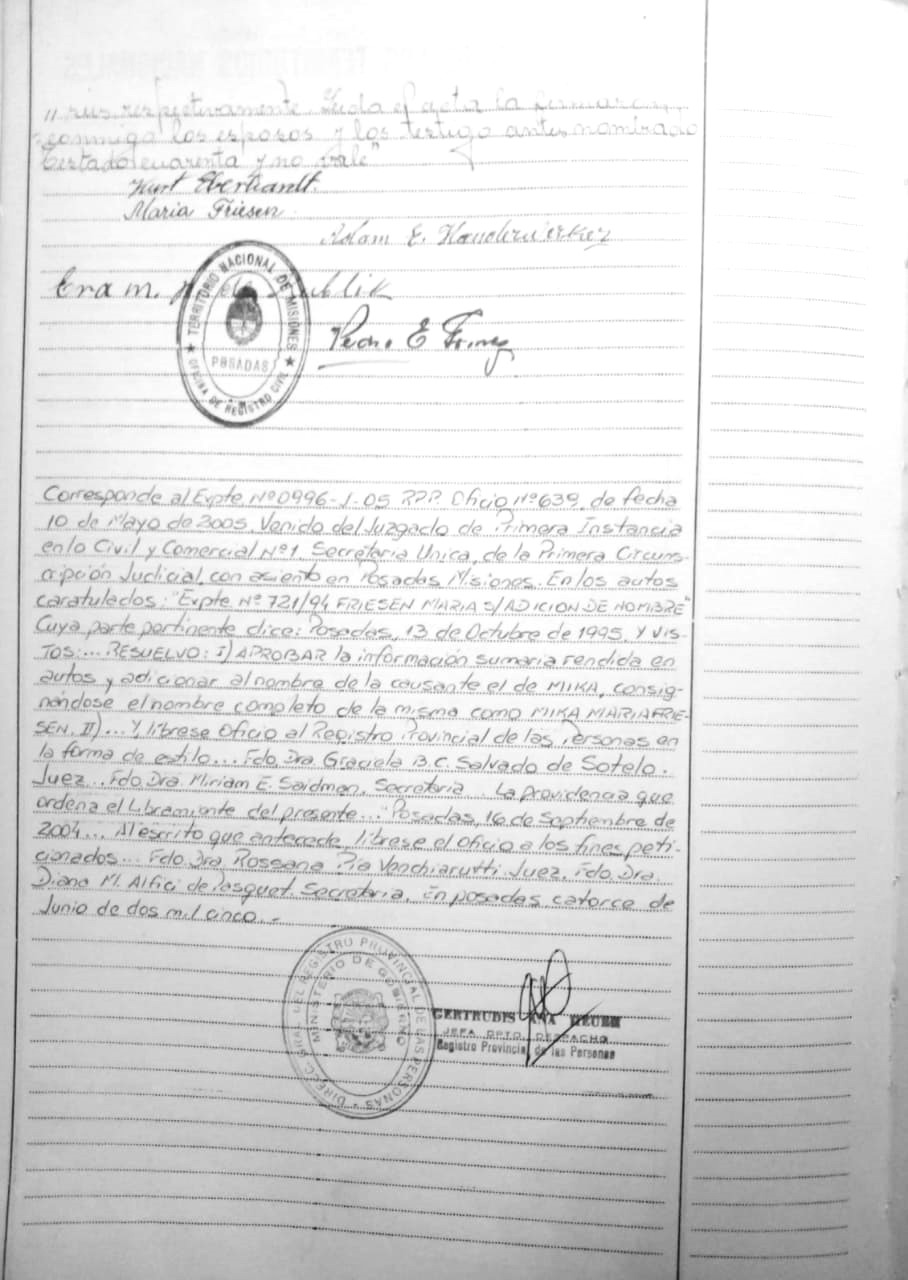 respetivamente. Leida el acta la firmaron,
conmigo los esposos y los testigo antes nombrado
Testado cuarenta y no vale"
Kurt Eberhardt.
Maria Friesen
Adam E. Handerwerker
TERRITORIO NACIONAL DE MISIONES
POSADAS
OFICINA DE REGISTRO CIVIL
Pedro E
Corresponde al Expte Nº 0996-J-05 RPP. Oficio Nº 639, de fecha
10 de Mayo de 2005, Venido del Juzgado de Primera Instancia
en lo Civil y Comercial Nº 1, Secretaria Unica, de la Primera Circuns-
cripción Judicial, con asiento en Posadas, Misiones. En los autos
caratulados: "Expte Nº 721/94 FRIESEN MARIA S/ADICION DE NOMBRE"
Cuya parte pertinente dice: Posadas, 13 de Octubre de 1995. Y VIS-
TOS:... RESUELVO: I) APROBAR la información sumaria rendida en
autos y adicionar al nombre de la causante el de MIKA, consig-
nándose el nombre completo de la misma como MIKA MARIA FRIE-
SEN, II)... Y líbrese Oficio al Registro Provincial de las Personas en
la forma de estilo... Fdo. Dra. Graciela B.C. Salvado de Sotelo.
Juez... Fdo. Dra. Miriam E. Saidman, Secretaria. La providencia que
ordena el Libramiento del presente...: Posadas, 16 de Septiembre de
2004... Al escrito que antecede, líbrese el oficio a los fines peti-
cionados... Fdo. Dra. Rossana Pia Venchiarutti Juez. Fdo. Dra.
Diana M. Alfici de Pasquet. Secretaria. En posadas, catorce de
Junio de dos mil cinco.-
DIREC. GRAL. DEL REGISTRO PROVINCIAL DE LAS PERSONAS
MINISTERIO DE GOBIERNO
GERTRUDIS ANA
JEFA DPTO. DESPACHO
Registro Provincial de las Personas